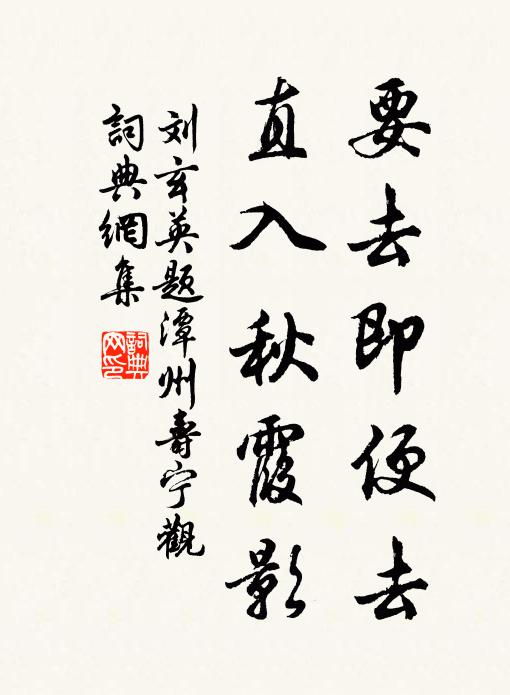 要去即便去
直入秋霞影
刘玄英题潭州壽宁觀
詞典網集
詞典網印